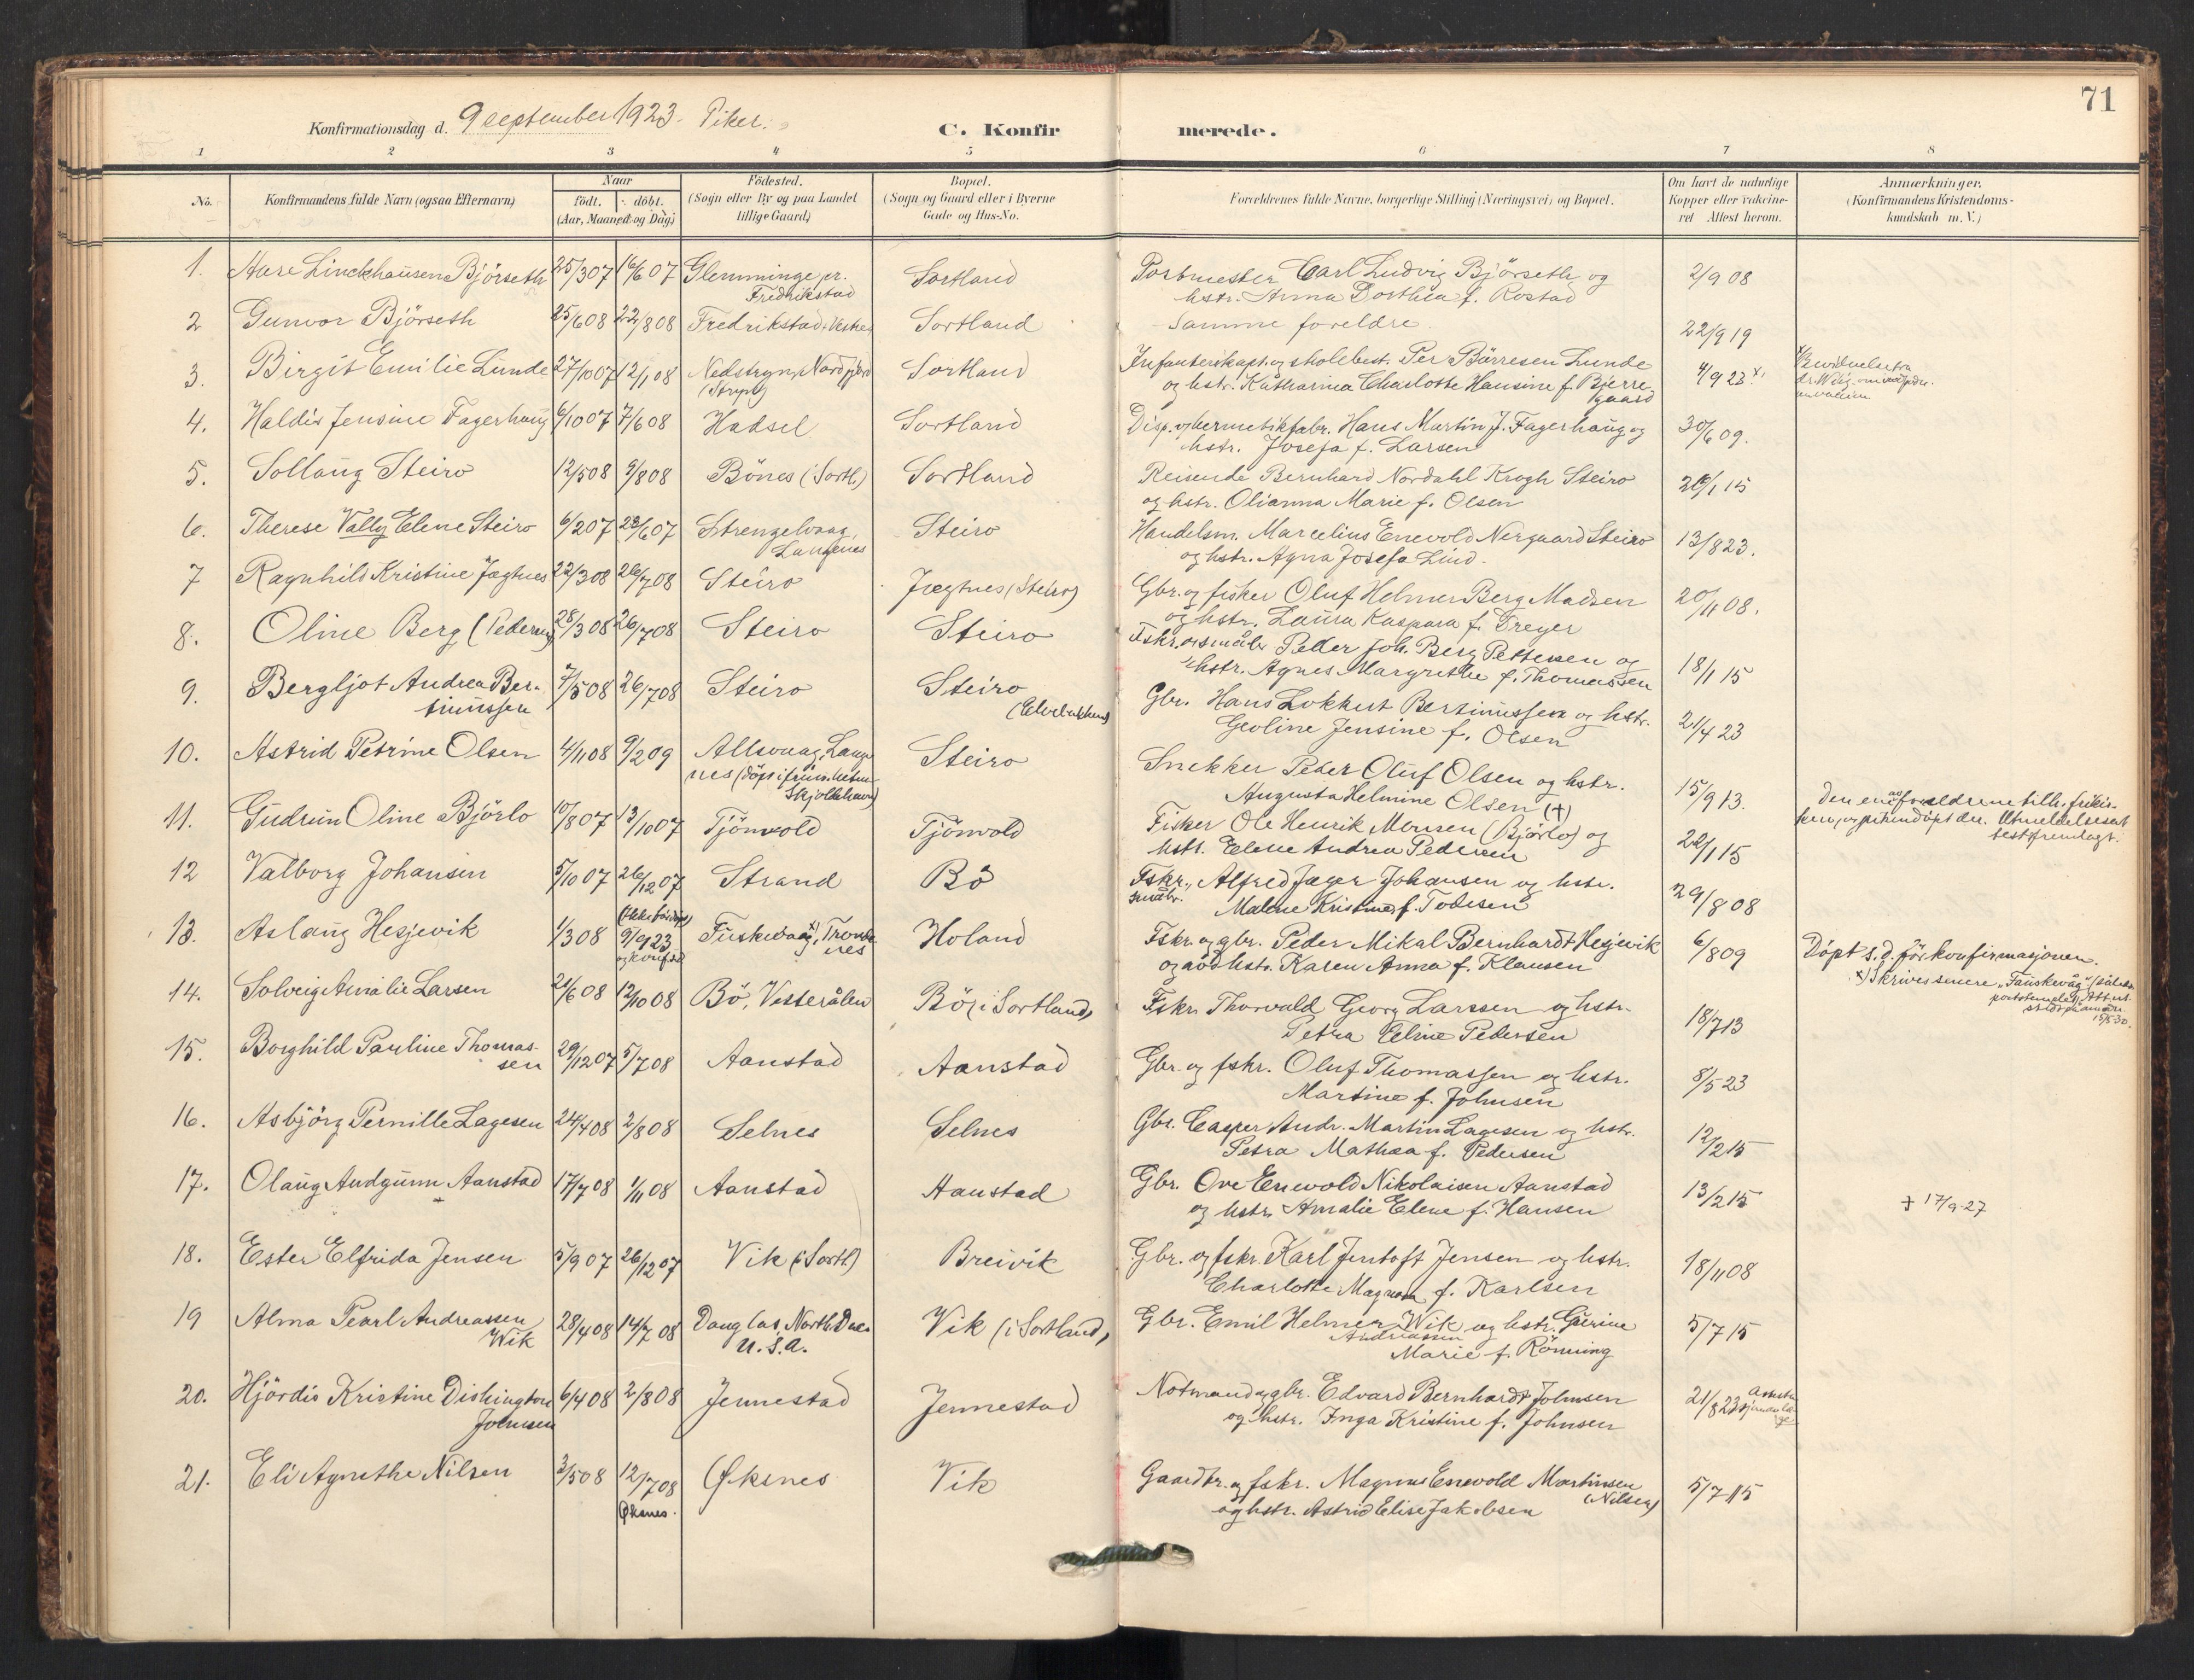 71
Konfirmationsdag d. 9 september 1923. Piker.
C. Konfir merede.
1 2 3 4 5 6 7 8
No.
Konfirmandens fulde Navn (ogsaa Efternavn)
Naar
födt. döbt.
(Aar, Maaned og Dag)
Födested.
(Sogn eller By og paa Landet
tillige Gaard)
Bopæl.
(Sogn og Gaard eller i Byerne
Gade og Hus-No.
Forældrenes fulde Navne, borgerlige Stilling (Næringsvei) og Bopæl.
Om havt de naturlige
Kopper eller vakcine-
ret Attest herom.
Anmærkninger.
(Konfirmandens Kristendoms-
kundskab m. V.)
1. Aase Linckhausen Björseth 25/3 07 16/6 07 Glemminge pr. Sortland Postmester Carl Ludvig Björseth og 2/9 08
Fredrikstad hstr. Anna Dorthea f. Rostad
2 Gunvor Björseth 25/6 08 22/8 08 Fredrikstad Sortland Samme foreldre. 22/9 19
3. Birgit Emilie Lunde 27/10 07 12/1 08 Nedstryn, Nordfjord Sortland Infanterikapt. og skolebest. Per Börresen Lunde 4/9 23 x)
(Stryn) og hstr. Katharina Charlotte Hansine f. Bjerre-
gaard
4. Haldis Jensine Fagerhaug 6/10 07 7/6 08 Hadsel Sortland Disp. og hermetikfabr. Hans Martin J. Fagerhaug og 30/6 09.
hstr. Josefa f. Larsen
5. Sollaug Steiro 12/5 08 9/8 08 Bönes (Sortl.) Sortland Reisende Bernhard Nordahl Krogh Steiro 26/1 15
og hstr. Olianna Marie f. Olsen
6. Therese Vally Elene Steiro 6/2 07 23/6 07 Strengelvaag, Steiro Handelsm. Marcelius Enevold Nergaard Steiro 13/8 23.
Langenes og hstr. Agna Josefa Lind.
7 Ragnhild Kristine Jægtnes 22/3 08 26/7 08 Steiro Jægtnes (Steiro) Gbr. og fisker Oluf Helmer Berg Madsen 20/11 08.
og hstr. Laura Kaspara f. Dreyer
8. Oline Berg (Pedersen) 28/3 08 26/7 08 Steiro Steiro Fskr. og småbr. Peder Joh. Berg Pettersen og 18/1 15
hstr. Agnes Margrethe f. Thomassen
9. Bergljot Andrea Ber- 7/5 08 26/7 08 Steiro Steiro Gbr. Hans Lokkert Bertinussen og hstr. 21/4 23
tinussen (Elvebakken) Geoline Jensine f. Olsen
10. Astrid Petrine Olsen 4/11 08 9/2 09 Allsvaag, Lange Steiro Snekker Peder Oluf Olsen og hstr. 15/9 13.
nes (döpt i frim.
Skjoldehavn) Augusta Helmine Olsen (+)
11. Gudrun Oline Björlo 10/8 07 13/10 07 Tjönvold Tjönvold Fisker Ole Henrik Monsen (Björlo) og 22/1 15
hstr. Elene Andrea Pedersen
Den ene av foreldrene tilh. frikir-
ken, og piken döpt der. Utmeldelsesat
test fremlagt.
12 Valborg Johansen 5/10 07 26/12 07 Strand Bö Fskr., Alfred Jager Johansen og hstr. 29/8 08
småbr. Malene Kristine f. Tobesen
13. Aslaug Hesjevik 1/3 08 (Ikke för döpt) 9/9 23 Fuskevaag x), Tronde Holand Fskr. og gbr. Peder Mikal Bernhardt Hesjevik 6/8 09 Döpt s. d. för konfirmasjonen.
og konf. s.d. nes og avd. hstr. Karen Anna f. Klausen
x) Skrives senere "Fauskevåg"
14. Solveig Amalie Larsen 21/6 08 12/10 08 Bö, Vesterålen Bö (i Sortland) Fskr. Thorvald Georg Larssen og hstr. 18/7 13
Petra Eline Pedersen
15. Borghild Pauline Thomas- 29/12 07 5/7 08 Aanstad Aanstad Gbr. og fskr. Oluf Thomassen og hstr. 8/5 23
sen Martine f. Johnsen
16. Asbjörg Pernille Lagesen 24/4 08 2/8 08 Selnes Selnes Gbr. Casper Andr. Martin Lagesen og hstr. 12/2 15
Petra Mathea f. Pedersen
17. Olaug Audgunn Aanstad 17/7 08 1/11 08 Aanstad Aanstad Gbr. Ove Enevold Nikolaisen Aanstad 13/2 15 + 17/9-27
og hstr. Amalie Elene f. Hansen
18. Ester Elfrida Jensen 5/9 07 26/12 07 Vik (Sortl) Breivik Gbr. og fskr. Karl Jentoft Jensen og hstr. 18/11 08
Charlotte Magna f. Karlsen
19 Alma Pearl Andreassen 28/4 08 14/7 08 Douglas, North Dac. Vik (i Sortland) Gbr. Emil Helmer Wik og hstr. Gurine 5/7 15
Wik U.S.A. Andreassen
Marie f. Rönning
20. Hjördis Kristine Dishington 6/4 08 2/8 08 Jennestad Jennestad Notmand og gbr. Edvard Bernhardt Johnsen 21/8 23
Johnsen og hstr. Inga Kristine f. Johnsen
21. Eli Agnethe Nilsen 3/5 08 12/7 08 Øksnes Vik Gaardbr. og fskr. Magnus Enevold Martinsen 5/7 15
Øksnes. (Nilsen)
og hstr. Astrid Elise Jakobsen